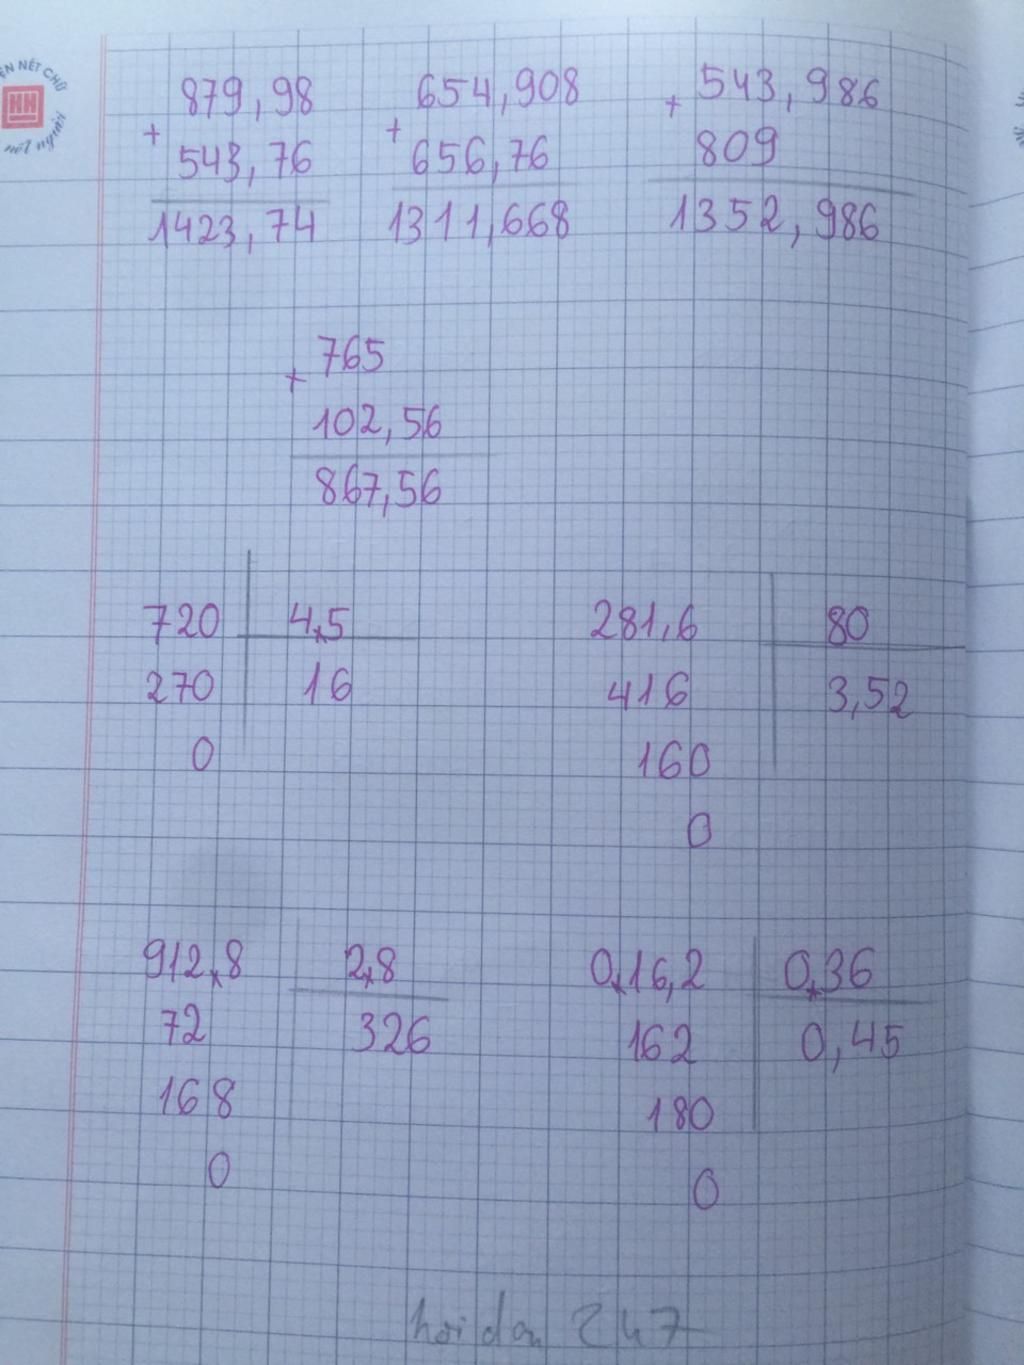 879,98 654,908 543,986
+ + +
543,76 656,76 809
1423,74 1311,668 1352,986
765
+
102,56
867,56
720 4,5 281,6 80
270 16 416 3,52
0 160
0
912,8 2,8 0,16,2 0,36
72 326 162 0,45
168 180
0 0
hoidap 247
nét người